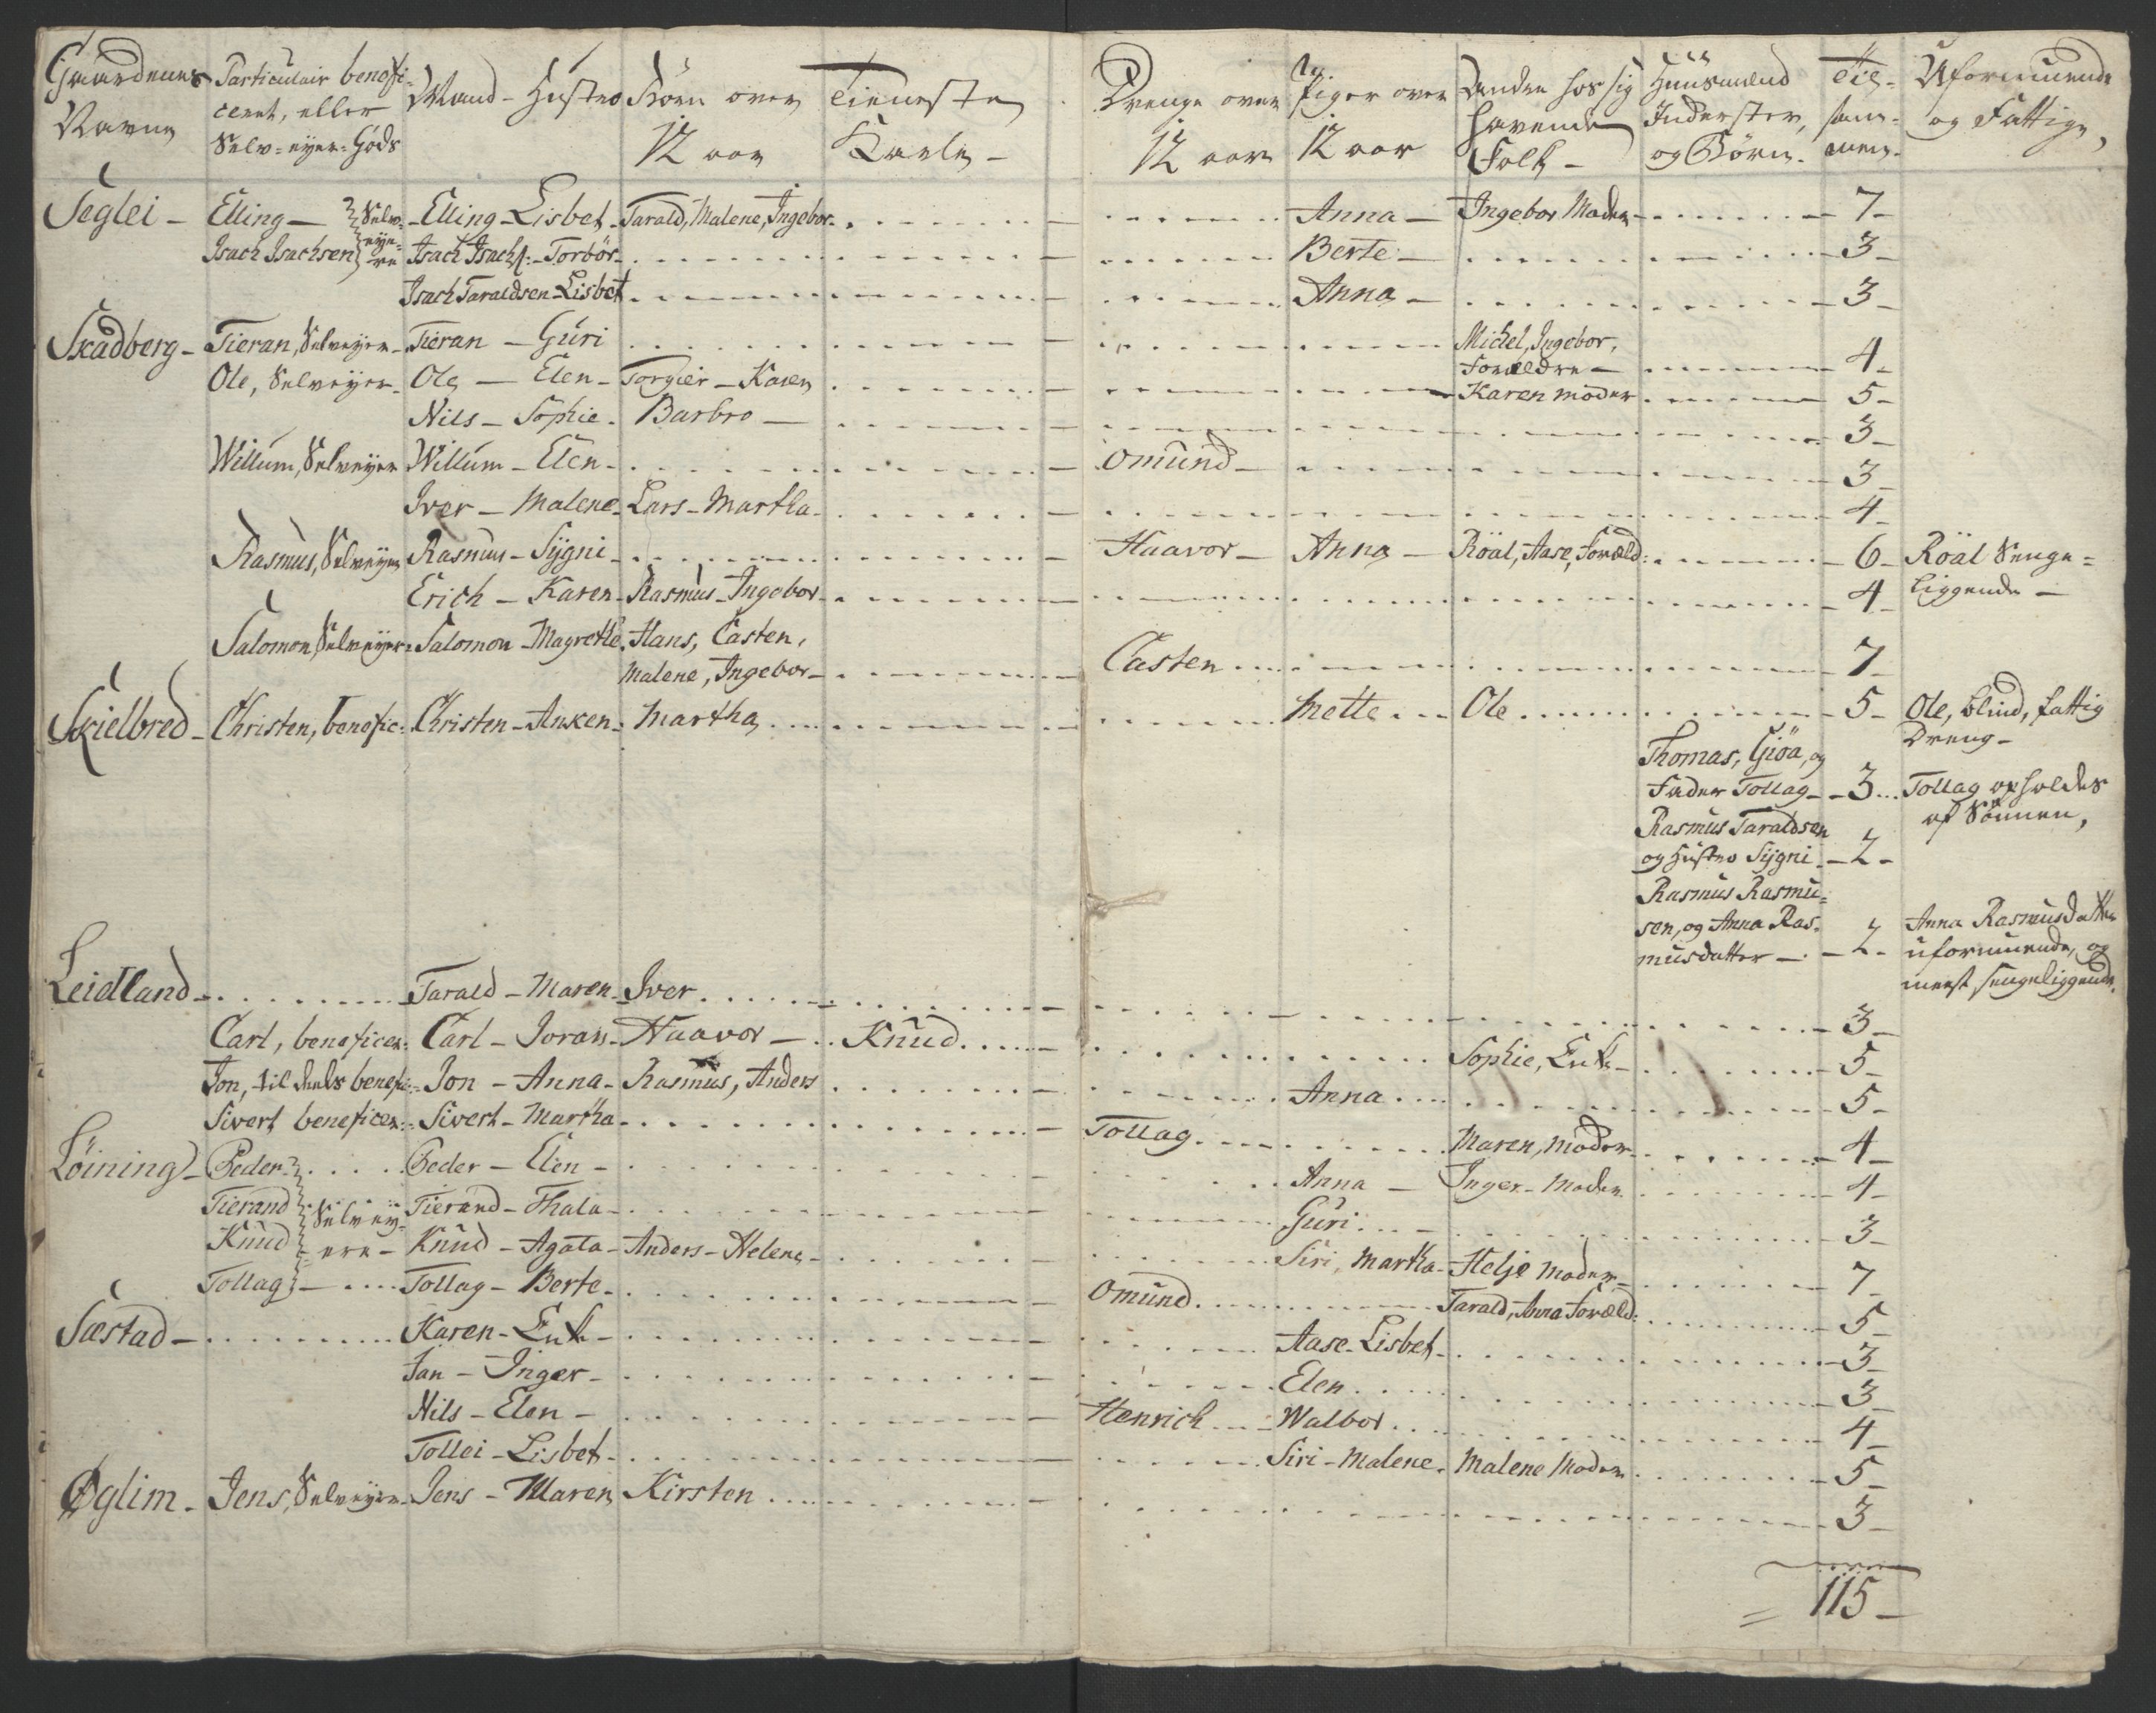 Gaardenes Navne | Particulair benefi-ceret, eller Selv-eyer-Gods | Mand - Hustro | Börn over 12 aar | Tieneste Karle - | Drenge over 12 aar | Piger over 12 aar | Anden hos sig havende Folk - | Huusmænd Inderster, og Börn. | Til-sam-men. | Uformuende og Fattige,
Seglei - | Elling - Selv-eye-re | Elling - Lisbet - | Tarald, Malene, Ingebor - | Anna - | Ingebor Moder - | 7 -
Isach Isachsen | Isach Isachs: - Torbör - | Berte - | 3 -
Isach Taraldsen - Lisbet | Anna - | 3 -
Skadberg - | Tieran, Selveyer - | Tieran - Guri | Michel, Ingebor, Forældre - | 4 -
Ole, Selveyer - | Ole - Elen - | Torgier - Karen | Karen moder | 5 -
Nils - Sophie - | Barbro - | 3 -
Willum, Selveyer | Willum - Elen - | Omund - | 3 -
Iver - Malene - | Lars - Martha - | 4 -
Rasmus, Selveyer | Rasmus - Sygni - | Haavor - | Anna - | Röal, Aase, Foræld: | 6 - | Röal Senge-
Erich - Karen - | Rasmus - Ingebor - | 4 - | liggende -
Salomon, Selveyer - | Salomon - Magrethe. | Hans, Casten,
Malene, Ingebor - | Casten | 7 -
Skielbred - | Christen, benefic: | Christen - Anken - | Martha | Mette | Ole | 5 - | Ole, blind, fattig
Dreng -
Thomas, Giöa, og
Fader Tollag - | 3 | Tollag opholdes
af Sönnen,
Rasmus Taraldsen
og Hustro Sygni - | 2 -
Rasmus Rasmu-
sen, og Anna Ras- | Anna Rasmusdatter
musdatter - | 2 - | uformuende, og
meest sengeliggende.
Leidland - | Tarald - Maren - | Iver | 3 -
Carl, beneficer: | Carl - Joran - | Haavor - | Knud | Sophie, Enke - | 5 -
Jon, til deels benefi: | Jon - Anna - | Rasmus, Anders | Anna | 5 -
Sivert beneficer: | Sivert - Martha - | Tollag | Maren, Moder | 4 -
Löining - | Peder | Peder - Elen - | Anna - | Inger - Moder | 4 -
Tierand Selvey-ere - | Tierand - Thala - | Guri | 3 -
Knud | Knud - Agata - | Anders - Helene - | Siri, Martha - | Helje Moder - | 7 -
Tollag - | Tollag - Berte - | Omund | Tarald, Anna Foræld: | 5 -
Sæstad - | Karen - Enke - | Aase - Lisbet - | 3 -
Jan - Inger - | Elen | 3 -
Nils - Elen - | Henrich | Walbor | 4 -
Tollei - Lisbet - | Siri - Malene - | Malene Moder | 5 -
Øglim - | Jens, Selveyer - | Jens - Maren | Kirsten | 3 -
= 115 -